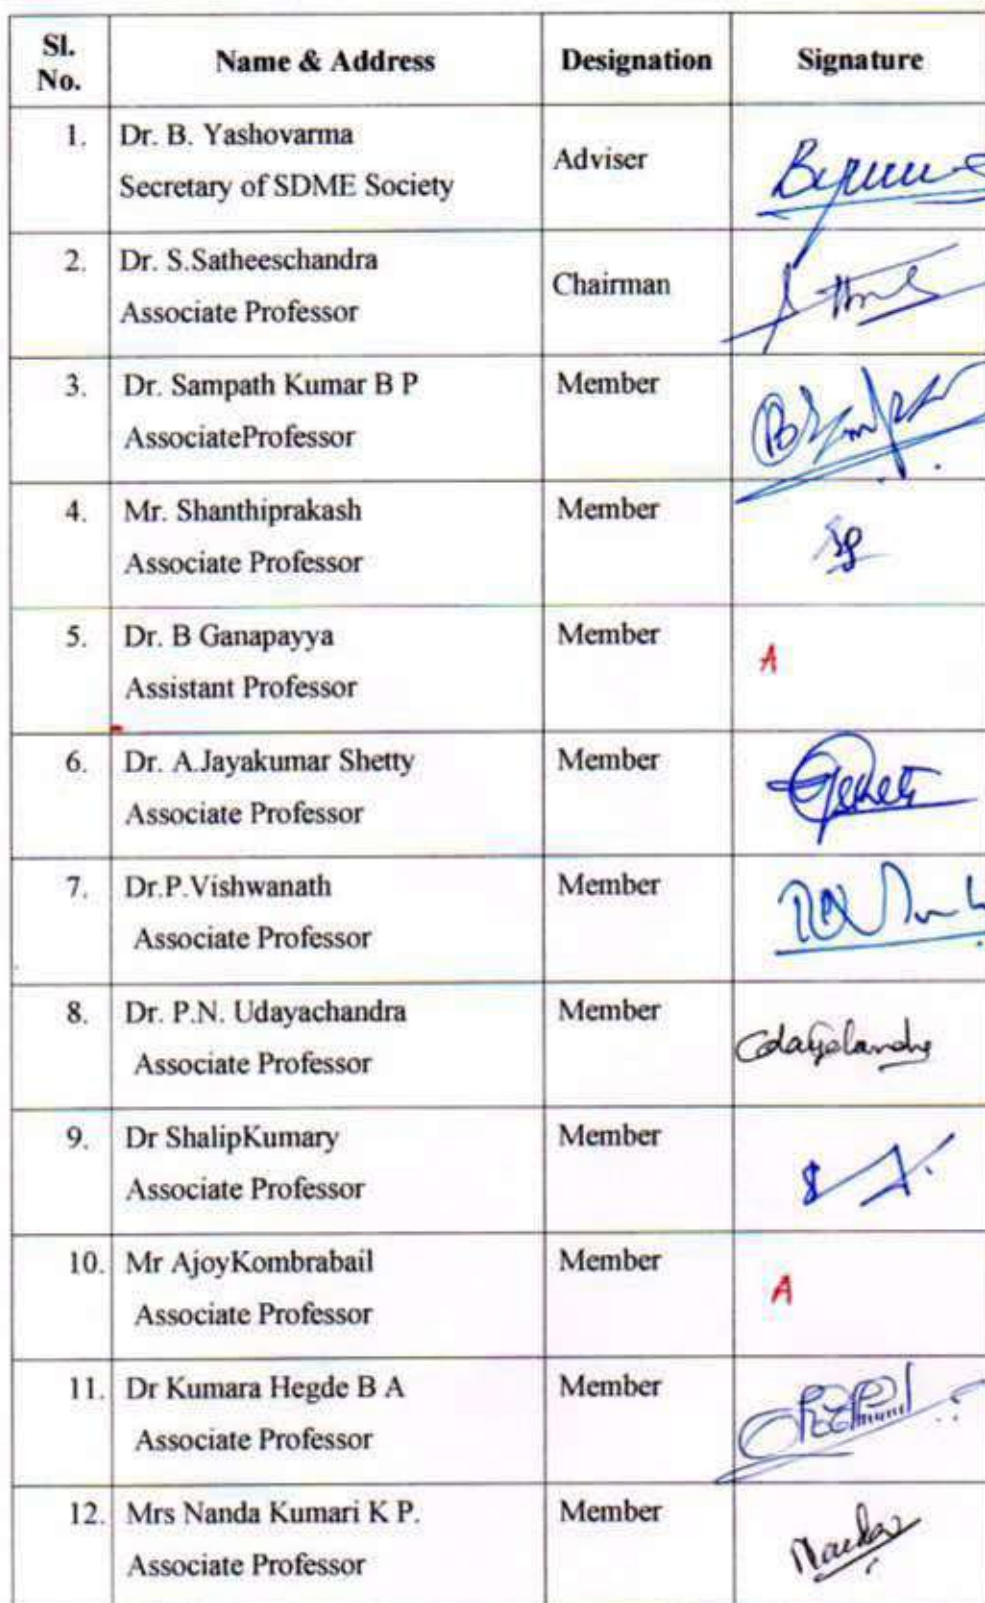 Sl. No. Name & Address Designation Signature
1. Dr. B. Yashovarma
Secretary of SDME Society
Adviser
2. Dr. S.Satheeschandra
Associate Professor
Chairman
3. Dr. Sampath Kumar B P
AssociateProfessor
Member
4. Mr. Shanthiprakash
Associate Professor
Member
5. Dr. B Ganapayya
Assistant Professor
Member
A
6. Dr. A.Jayakumar Shetty
Associate Professor
Member
7. Dr.P.Vishwanath
Associate Professor
Member
8. Dr. P.N. Udayachandra
Associate Professor
Member
9. Dr ShalipKumary
Associate Professor
Member
10. Mr AjoyKombrabail
Associate Professor
Member
A
11. Dr Kumara Hegde B A
Associate Professor
Member
12. Mrs Nanda Kumari K P.
Associate Professor
Member